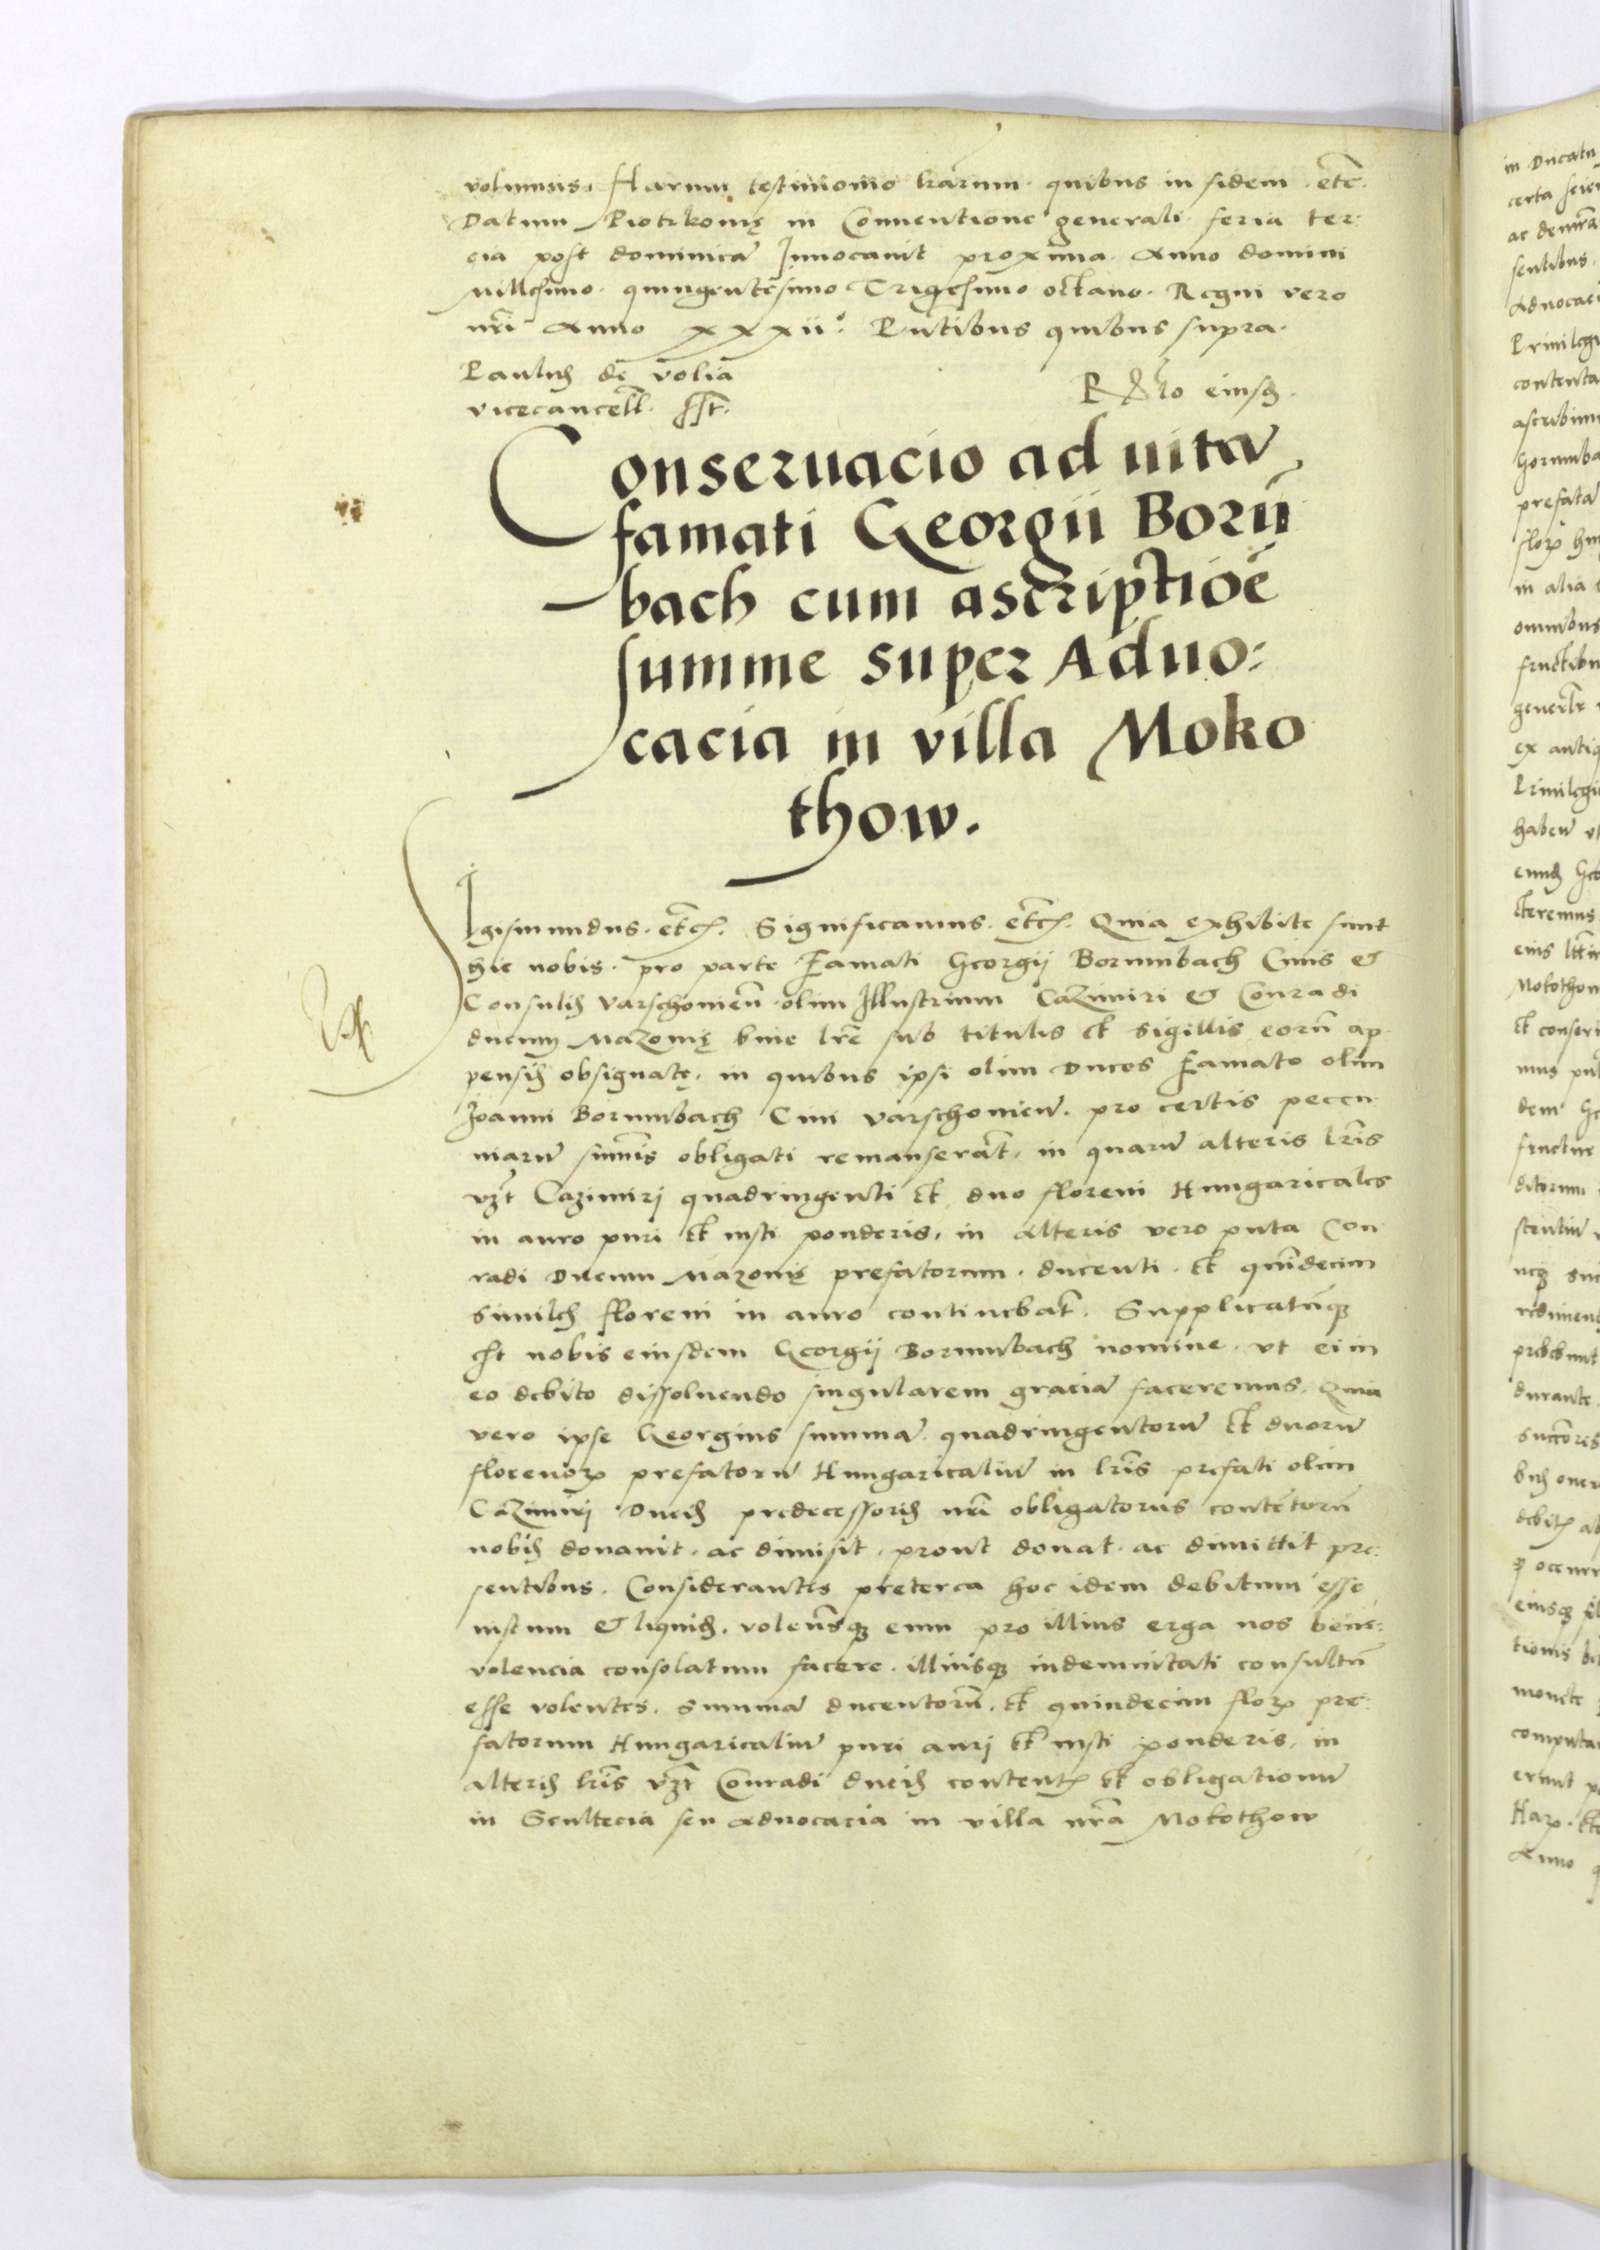 volumus. Harum testimonio lr̃arum. quibus in fidem. etc̃.
Datum Piotrkowię in Conventione generali. feria ter:
cia post dominicā Invocavit proxima. Anno domini
Millesimo. quingentesimo Trigesimo octavo. Regni vero
nr̃i Anno XXXII°. Pñtibus quibus supra.
Paulus de volia
vicecancell. sst.
Rᵗⁱᵒ eiusđ.
Conservacio ad uitā
famati Georgii Borū
bach cum ascriptiõe
summe super Aduo:
cacia in villa Moko
thow.
Sigismundus. etc̃. Significamus. etc̃. Quia exhibite sunt
hic nobis. pro parte Famati Georgij Borumbach Civis &
Consulis Varschovieñ. olim Illustrium Cazimiri & Conradi
ducum Mazovię bine lr̃e sub titulis et sigillis eorū ap
pensis obsignatę. in quibus ipsi olim Duces Famato olim
Joanni Borumbach Civi Varschovieñ. pro certis pecu
niarū summis obligati remanserāt. in quarū alteris lr̃is
vz̃t Cazimirj quadringenti et duo floreni Hungaricales
in auro puri et iusti ponderis. in alteris vero puta Con
radi Ducum Mazovię prefatorum. ducenti. et quīdecim
similes floreni in auro continebāt. Supplicatūque
est nobis eiusdem Georgij Borumbach nomine. vt ei in
eo debito dissoluendo singularem graciā faceremus. Quia
vero ipse Georgius summā quadringentorū et duorū
florenorum prefatorū Hungaricaliū in lr̃is prefati olim
Cazimirj Ducis predecessoris nr̃i obligatorijs contētorū
nobis donavit. ac dimisit. prout donat. ac dimittit pre:
sentibus. Considerantes preterea hoc idem debitum esse
iustum & liquidum. volentesque eum pro illius erga nos bene:
volencia consolatum facere. illiusque indemnitati consultū
esse volentes. summā ducentorū. et quindecim florum pre:
fatorum Hungaricaliū puri aurj et iusti ponderis. in
alteris lr̃is vz̃t Conradi ducis contentum et obligationū
in Scultecia seu advocacia in villa nr̃a Mokothow